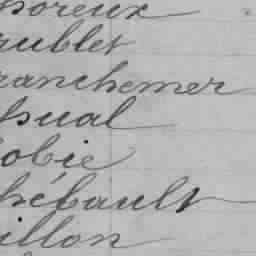 soreux
rublet
ranchemer
sual
obie
hébault
illon